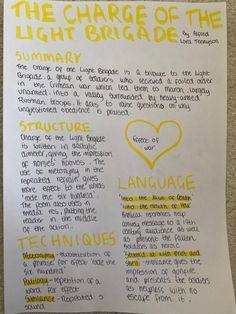 THE CHARGE OF THE
LIGHT BRIGADE
By Alfred
Lord Tennyson
SUMMARY
The Charge of the Light Brigade is a tribute to the Light
Brigade. A group of soldiers who received a failed order
in the Crimean war which led them to march, largely
unarmed, into a valley surrounded by heavily armed
Russian troops. It asks to raise questions on why
unquestioned obedience is praised.
STRUCTURE
Charge of the Light Brigade
is written in dactylic
dimeter, giving the impression
of horses hooves. The
use of metonymy in the
repeated refrain gives
more effect to the words
'rode the six hundred'.
The poem also uses in
media res, putting the
reader in the middle of
the action.
Effect of
war
LANGUAGE
'Into the jaws of Death
into the mouth of Hell'
Biblical metaphors help
convey message to a 19th
century audience as well
as present the fallen
soldiers as heroic
'Stormed at with shot and
shell' - sibilance gives the
impression of gunfire
and presents the soldiers
as helpless with no
escape from it.
TECHNIQUES
Metonymy - substitution of
a phrase for effect 'rode the
six hundred'
- repetition of a
word for effect
Sibilance - Repeated s
sound